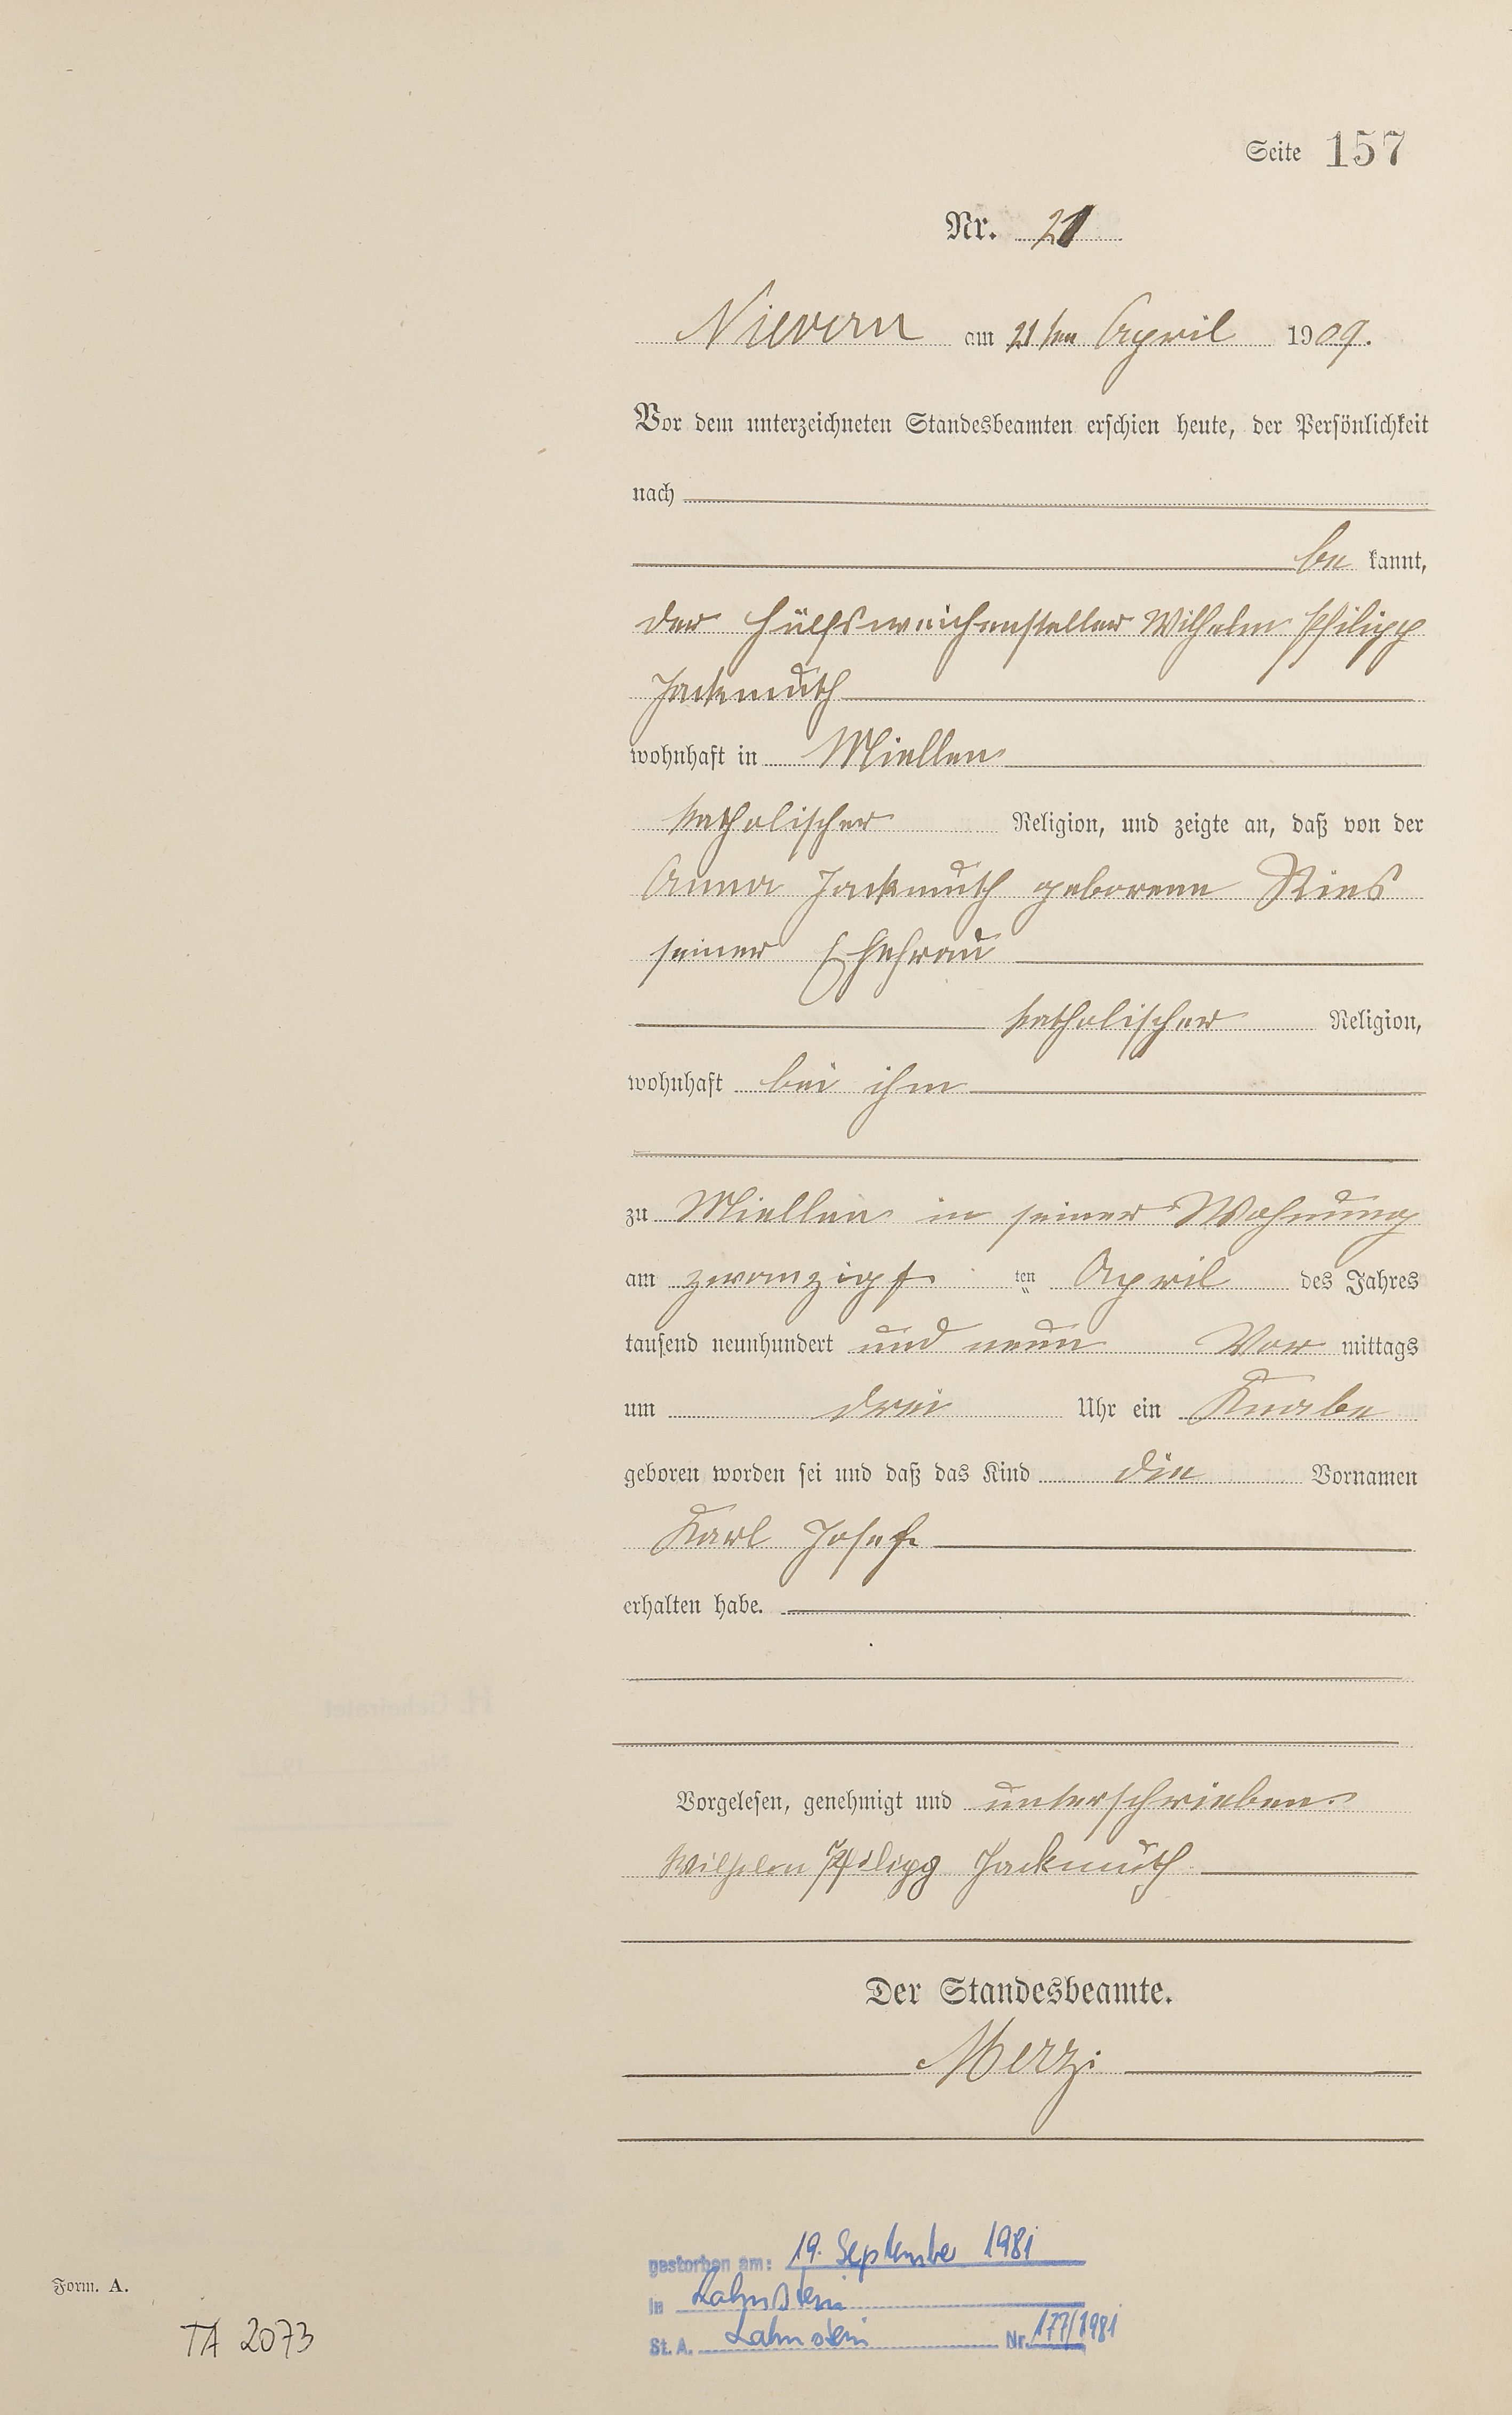 Seite 157
Nr. 21
Nievern am 21ten April 1909.
Vor dem unterzeichneten Standesbeamten erschien heute, der Persönlichkeit
nach
be kannt,
der Hülfsweichensteller Wilhelm Philipp
Jackmuth
wohnhaft in Miellen
katholischer Religion, und zeigte an, daß von der
Anna Jackmuth geborene Ries
seiner Ehefrau
katholischer Religion,
wohnhaft bei ihm
zu Miellen in seiner Wohnung
am zwanzigs ten April des Jahres
tausend neunhundert und neun Vor mittags
um drei Uhr ein Knabe
geboren worden sei und daß das Kind die Vornamen
Karl Josef
erhalten habe.
Vorgelesen, genehmigt und unterschrieben.
Wilhelm Philipp Jackmuth
Der Standesbeamte.
Merzi
gestorben am: 19. September 1981
in Lahnstein
St. A. Lahnstein Nr. 177/1981
Form. A.
TA 2073